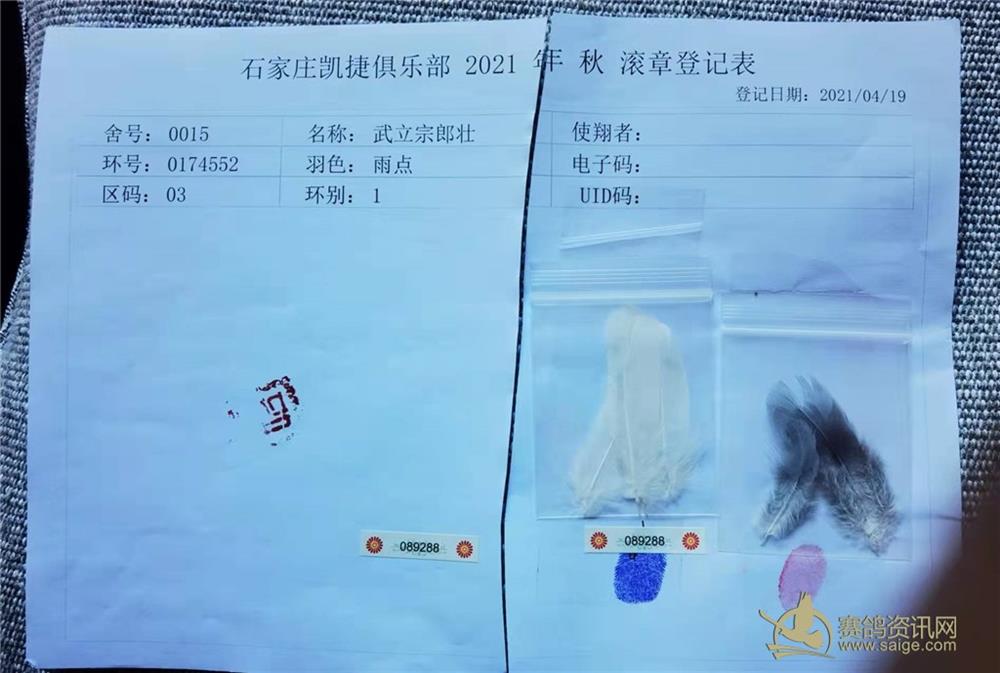 石家庄凯捷俱乐部 2021 年 秋 滚章登记表
登记日期: 2021/04/19
舍号: 0015 名称: 武立宗郎壮 使翔者:
环号: 0174552 羽色: 雨点 电子码:
区码: 03 环别: 1 UID码:
089288 089288
赛鸽资讯网
www.saige.com